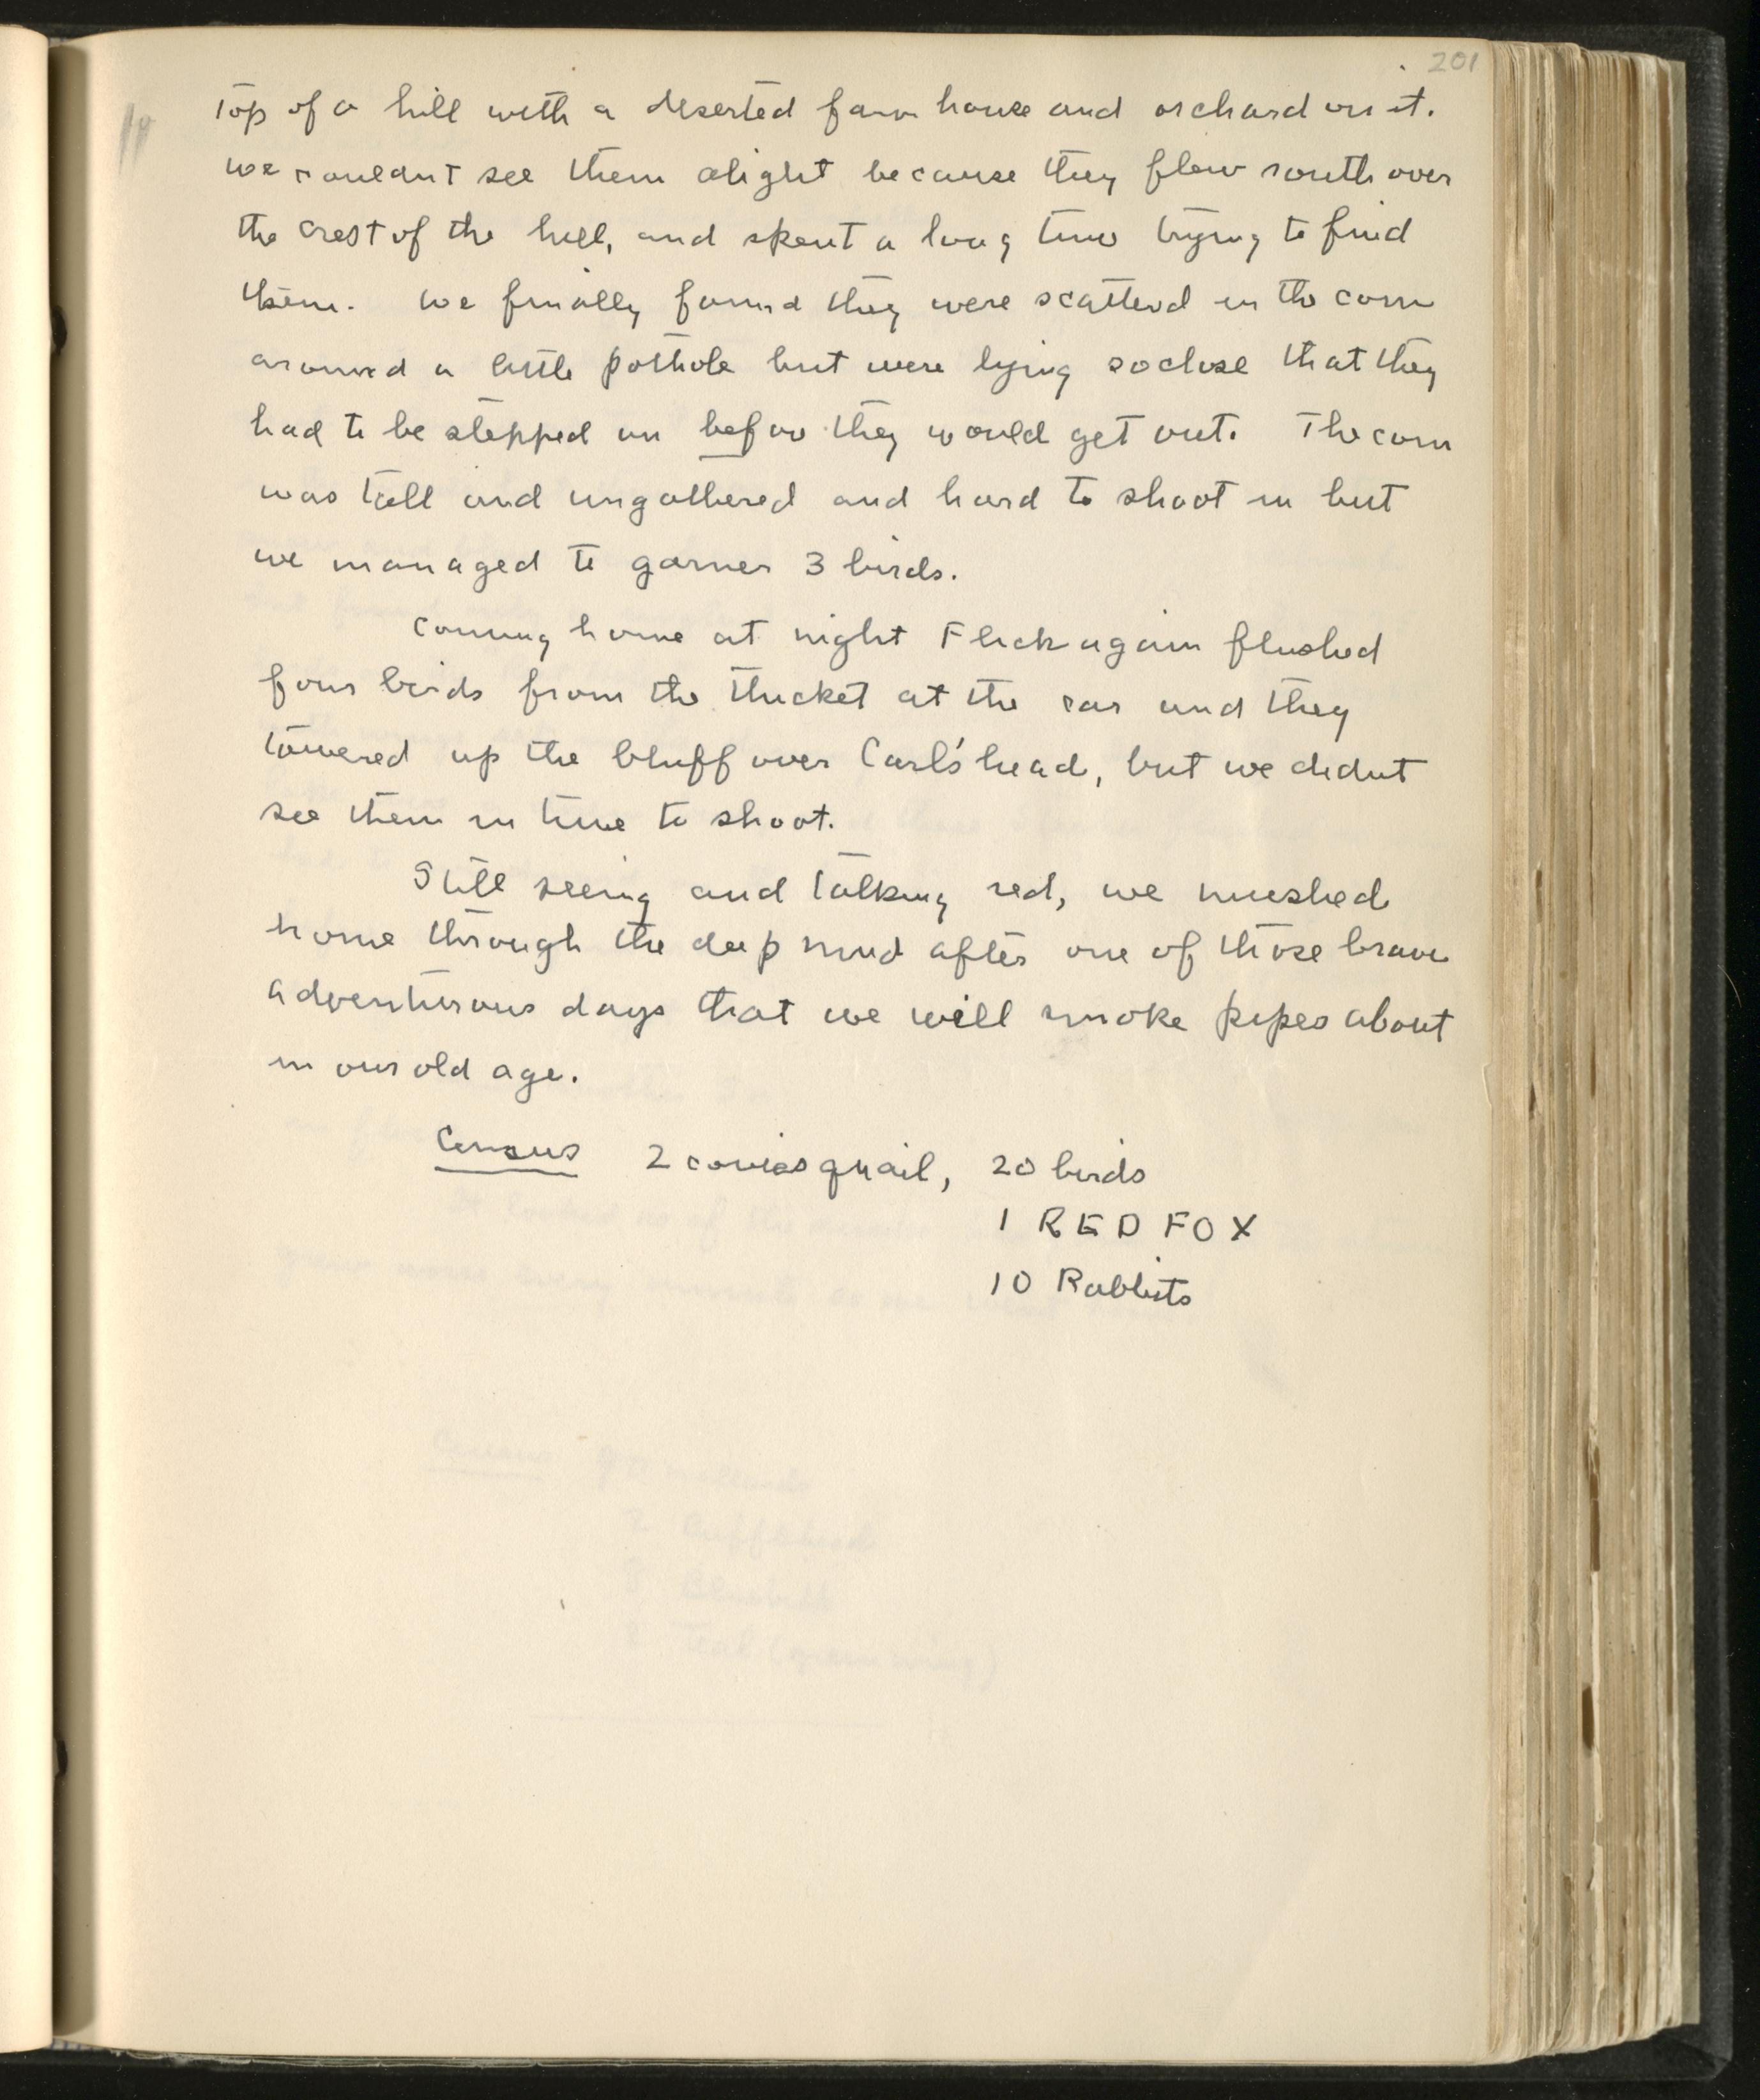 201
top of a hill with a deserted farm house and orchard on it.
we couldnt see them alight because they flew south over
the crest of the hill, and spent a long time trying to find
them. We finally found they were scatterd in the corn
around a little pothole but were lying so close that they
had to be stepped on before they would get out. The corn
was tall and ungathered and hard to shoot in but
we managed to garner 3 birds.
Coming home at night Flick again flushed
four birds from the thicket at the car and they
towered up the bluff over Carl's head, but we didnt
see them in time to shoot.
Still seeing and talking red, we mushed
home through the deep mud after one of those brave
adventurous days that we will smoke pipes about
in our old age.
Census 2 covies quail, 20 birds
1 RED FOX
10 Rabbits